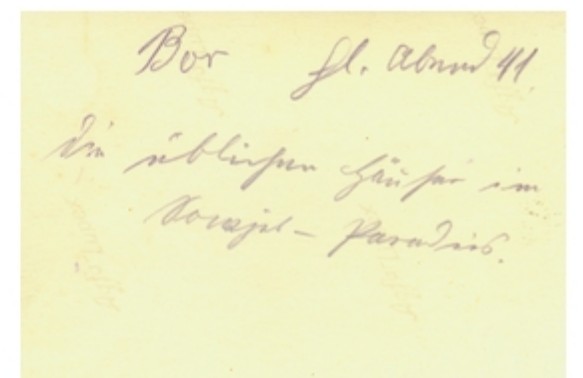 Bor Hl. Abend 41
die üblichen Häuser im
Sowjet-Paradies.